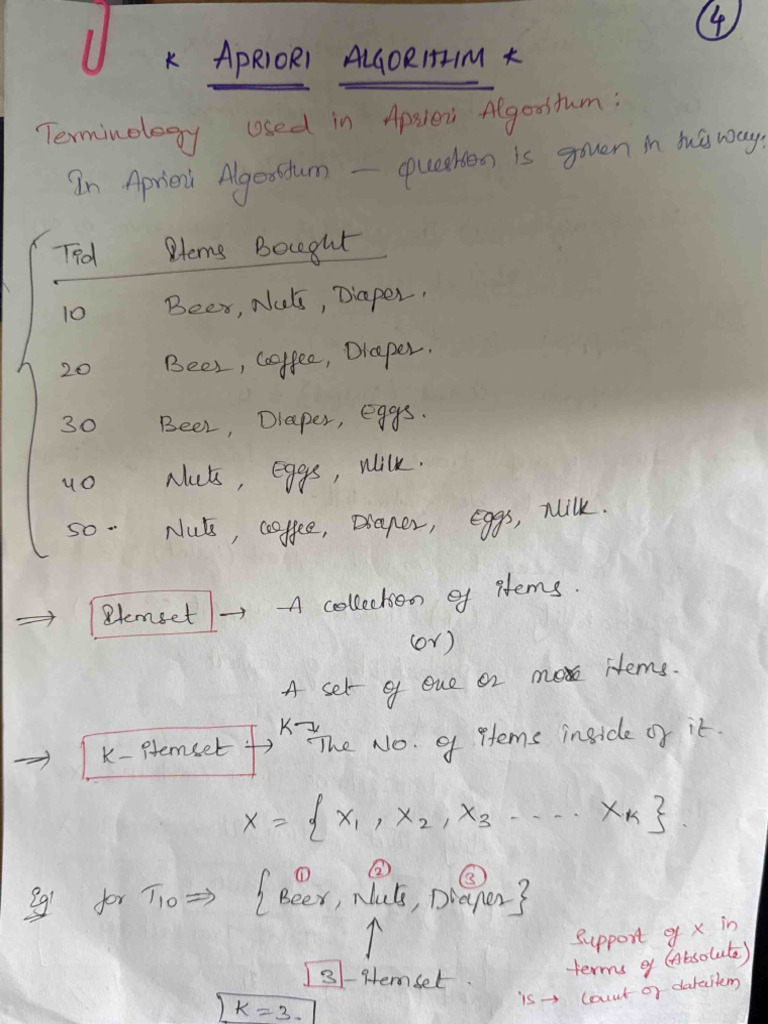 4
* APRIORI ALGORITHM *
Terminology used in Apriori Algorithm:
In Apriori Algorithm — question is given in this way:
Tid Items Bought
10 Beer, Nuts, Diaper.
20 Beer, Coffee, Diaper.
30 Beer, Diaper, Eggs.
40 Nuts, Eggs, Milk.
50 Nuts, Coffee, Diaper, Eggs, Milk.
⇒ Itemset → A collection of items.
(or)
A set of one or more items.
⇒ K-itemset → K→ The No. of items inside of it.
X = { X1, X2, X3 ..... XK}.
Eg! for T10 ⇒ {Beer, Nuts, Diaper}
① ② ③
↑
3-Itemset.
K=3.
Support of X in
terms of (Absolute)
is → count of dataitem